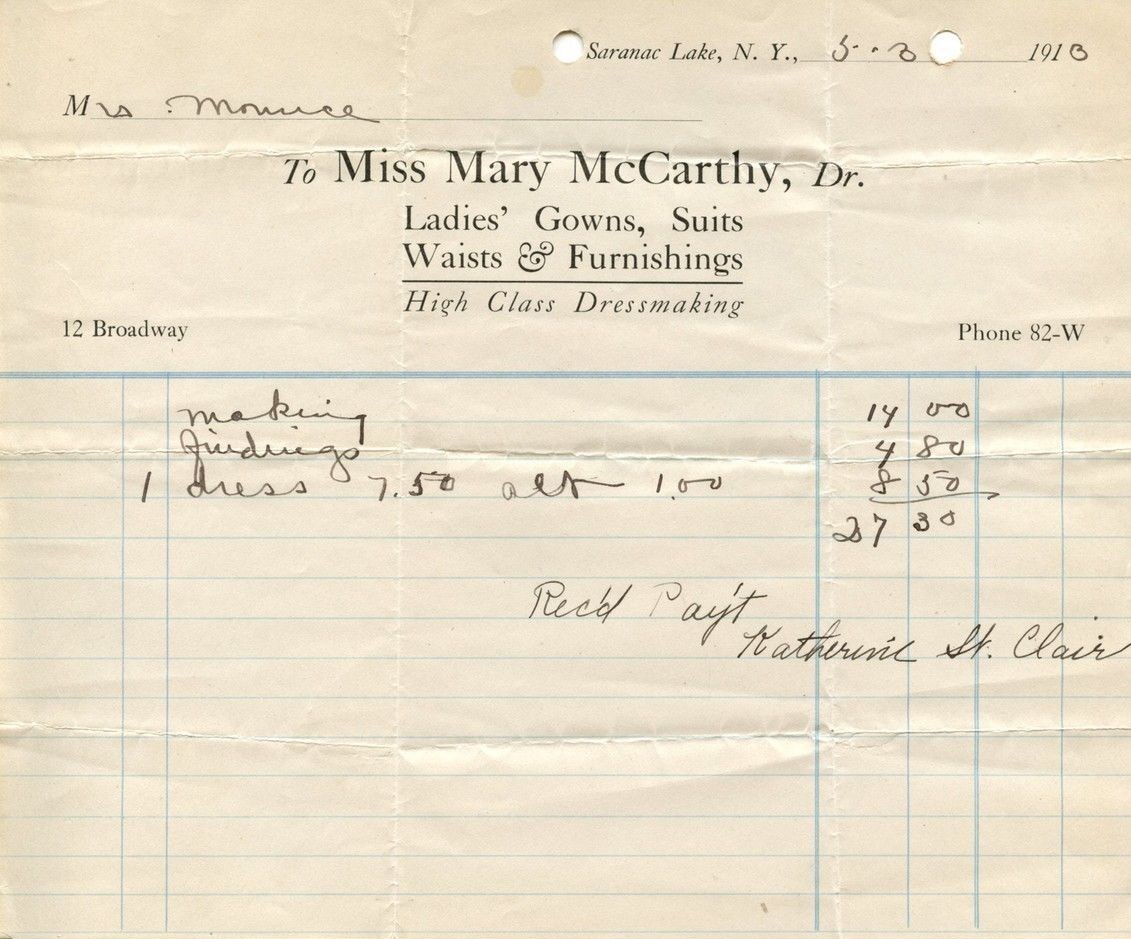 Saranac Lake, N. Y., 5-3 1913
Mrs
To Miss Mary McCarthy, Dr.
Ladies' Gowns, Suits
Waists & Furnishings
High Class Dressmaking
12 Broadway Phone 82-W
making 14 00
findings 4 80
1 dress 7.50 alt 1.00 8 50
27 30
Rec'd Pay't
Katherine St. Clair